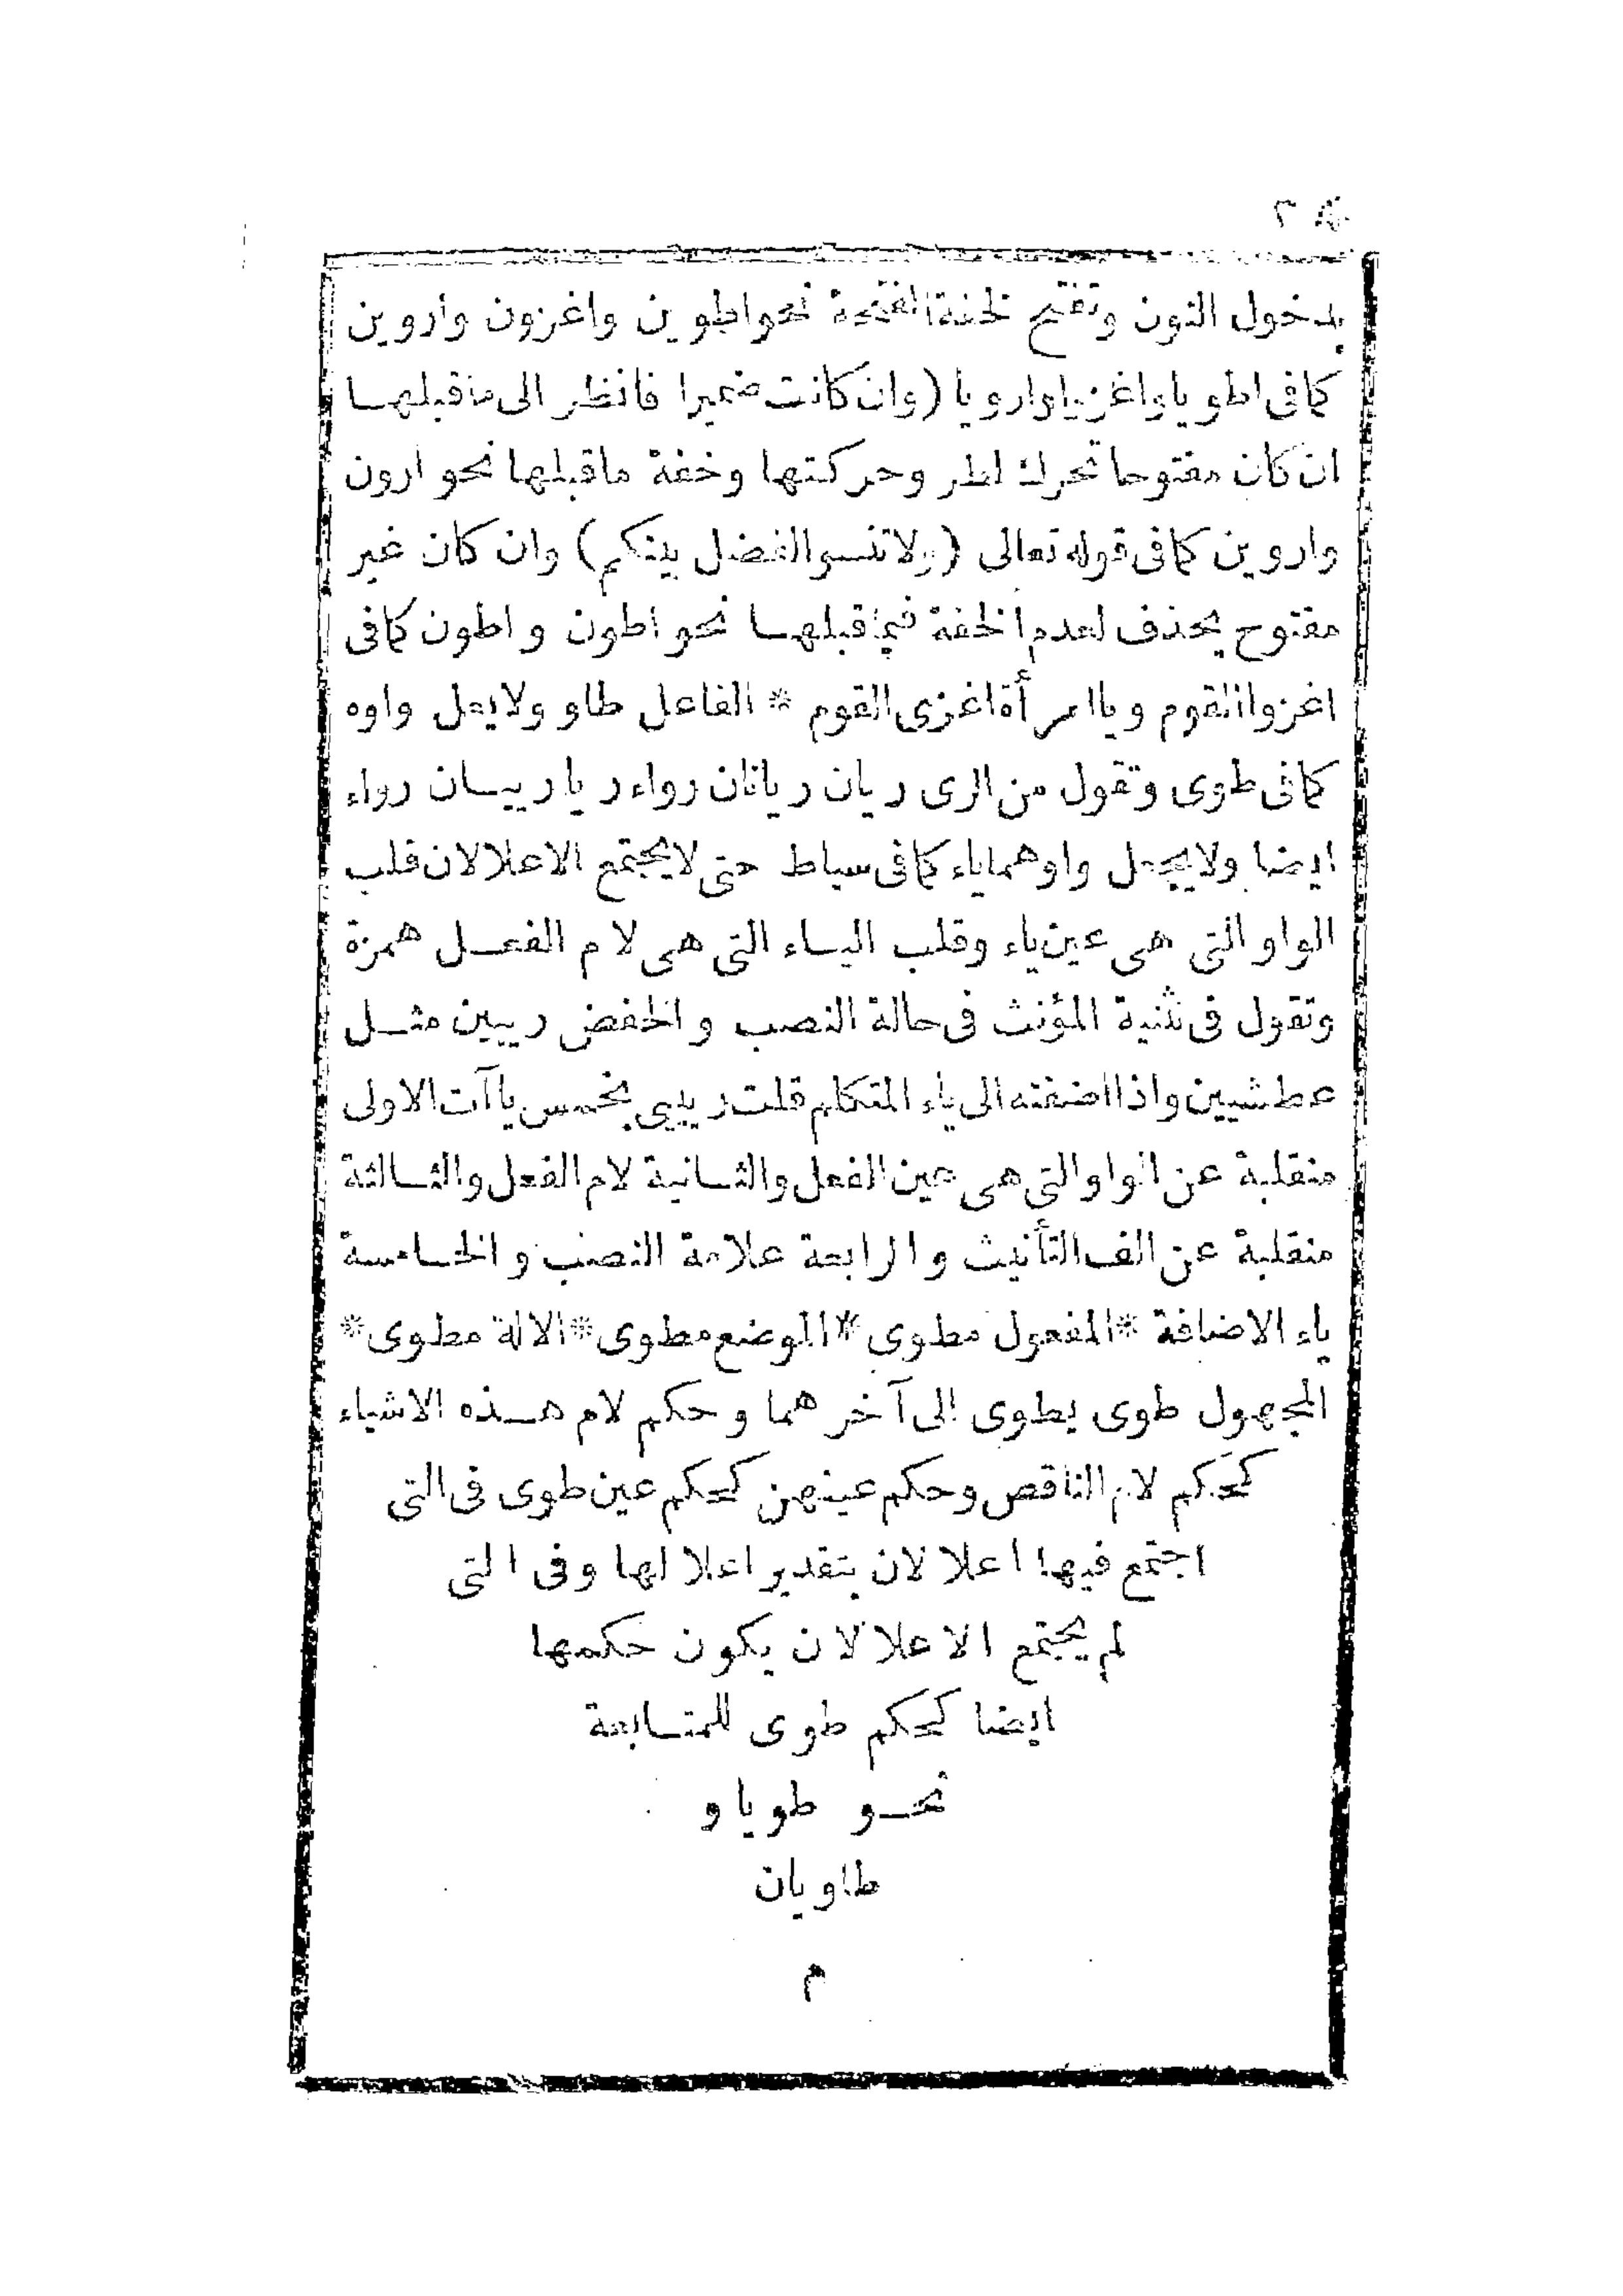 بدخول النون وتفتح لخفة الفتحة نحو اطوين واغزون واروين
كما فى اطويا واغزوا وارويا (وان كانت ضميرا فانظر الى ما قبلها
ان كان مفتوحا تحرك لطر وحركتها وخفة ماقبلها نحو ارون
واروين كما فى قوله تعالى (ولا تنسوا الفضل بينكم) وان كان غير
مفتوح يحذف لعدم الخفة فيما قبلها نحو اطون واطون كما فى
اغزوا القوم ويا امرأة اغزى القوم * الفاعل طاو ولا يعل واوه
كما فى طوى وتقول من الرى ريان ريانان رواء ريا رييان رواء
ايضا ولا يجعل واوهما ياء كما فى سياط حتى لا يجتمع الاعلالان قلب
الواو التى هى عين ياء وقلب الياء التى هى لام الفعل همزة
وتقول فى تثنية المؤنث فى حالة النصب والخفض ريين مثل
عطشيين واذا اضفته الى ياء المتكلم قلت ريبى بخمس يا آت الاولى
منقلبة عن الواو التى هى عين الفعل والثانية لام الفعل والثالثة
منقلبة عن الف التأنيث والرابعة علامة النصب والخامسة
ياء الاضافة * المفعول مطوى * الموضع مطوى * الالة مطوى *
المجهول طوى يطوى الى آخرهما وحكم لام هذه الاشياء
كحكم لام الناقص وحكم عينهن كحكم عين طوى فى التى
اجتمع فيها اعلالان بتقدير اعلالها وفى التى
لم يجتمع الاعلالان يكون حكمها
ايضا كحكم طوى للمتابعة
نحو طويا و
طاويان
م